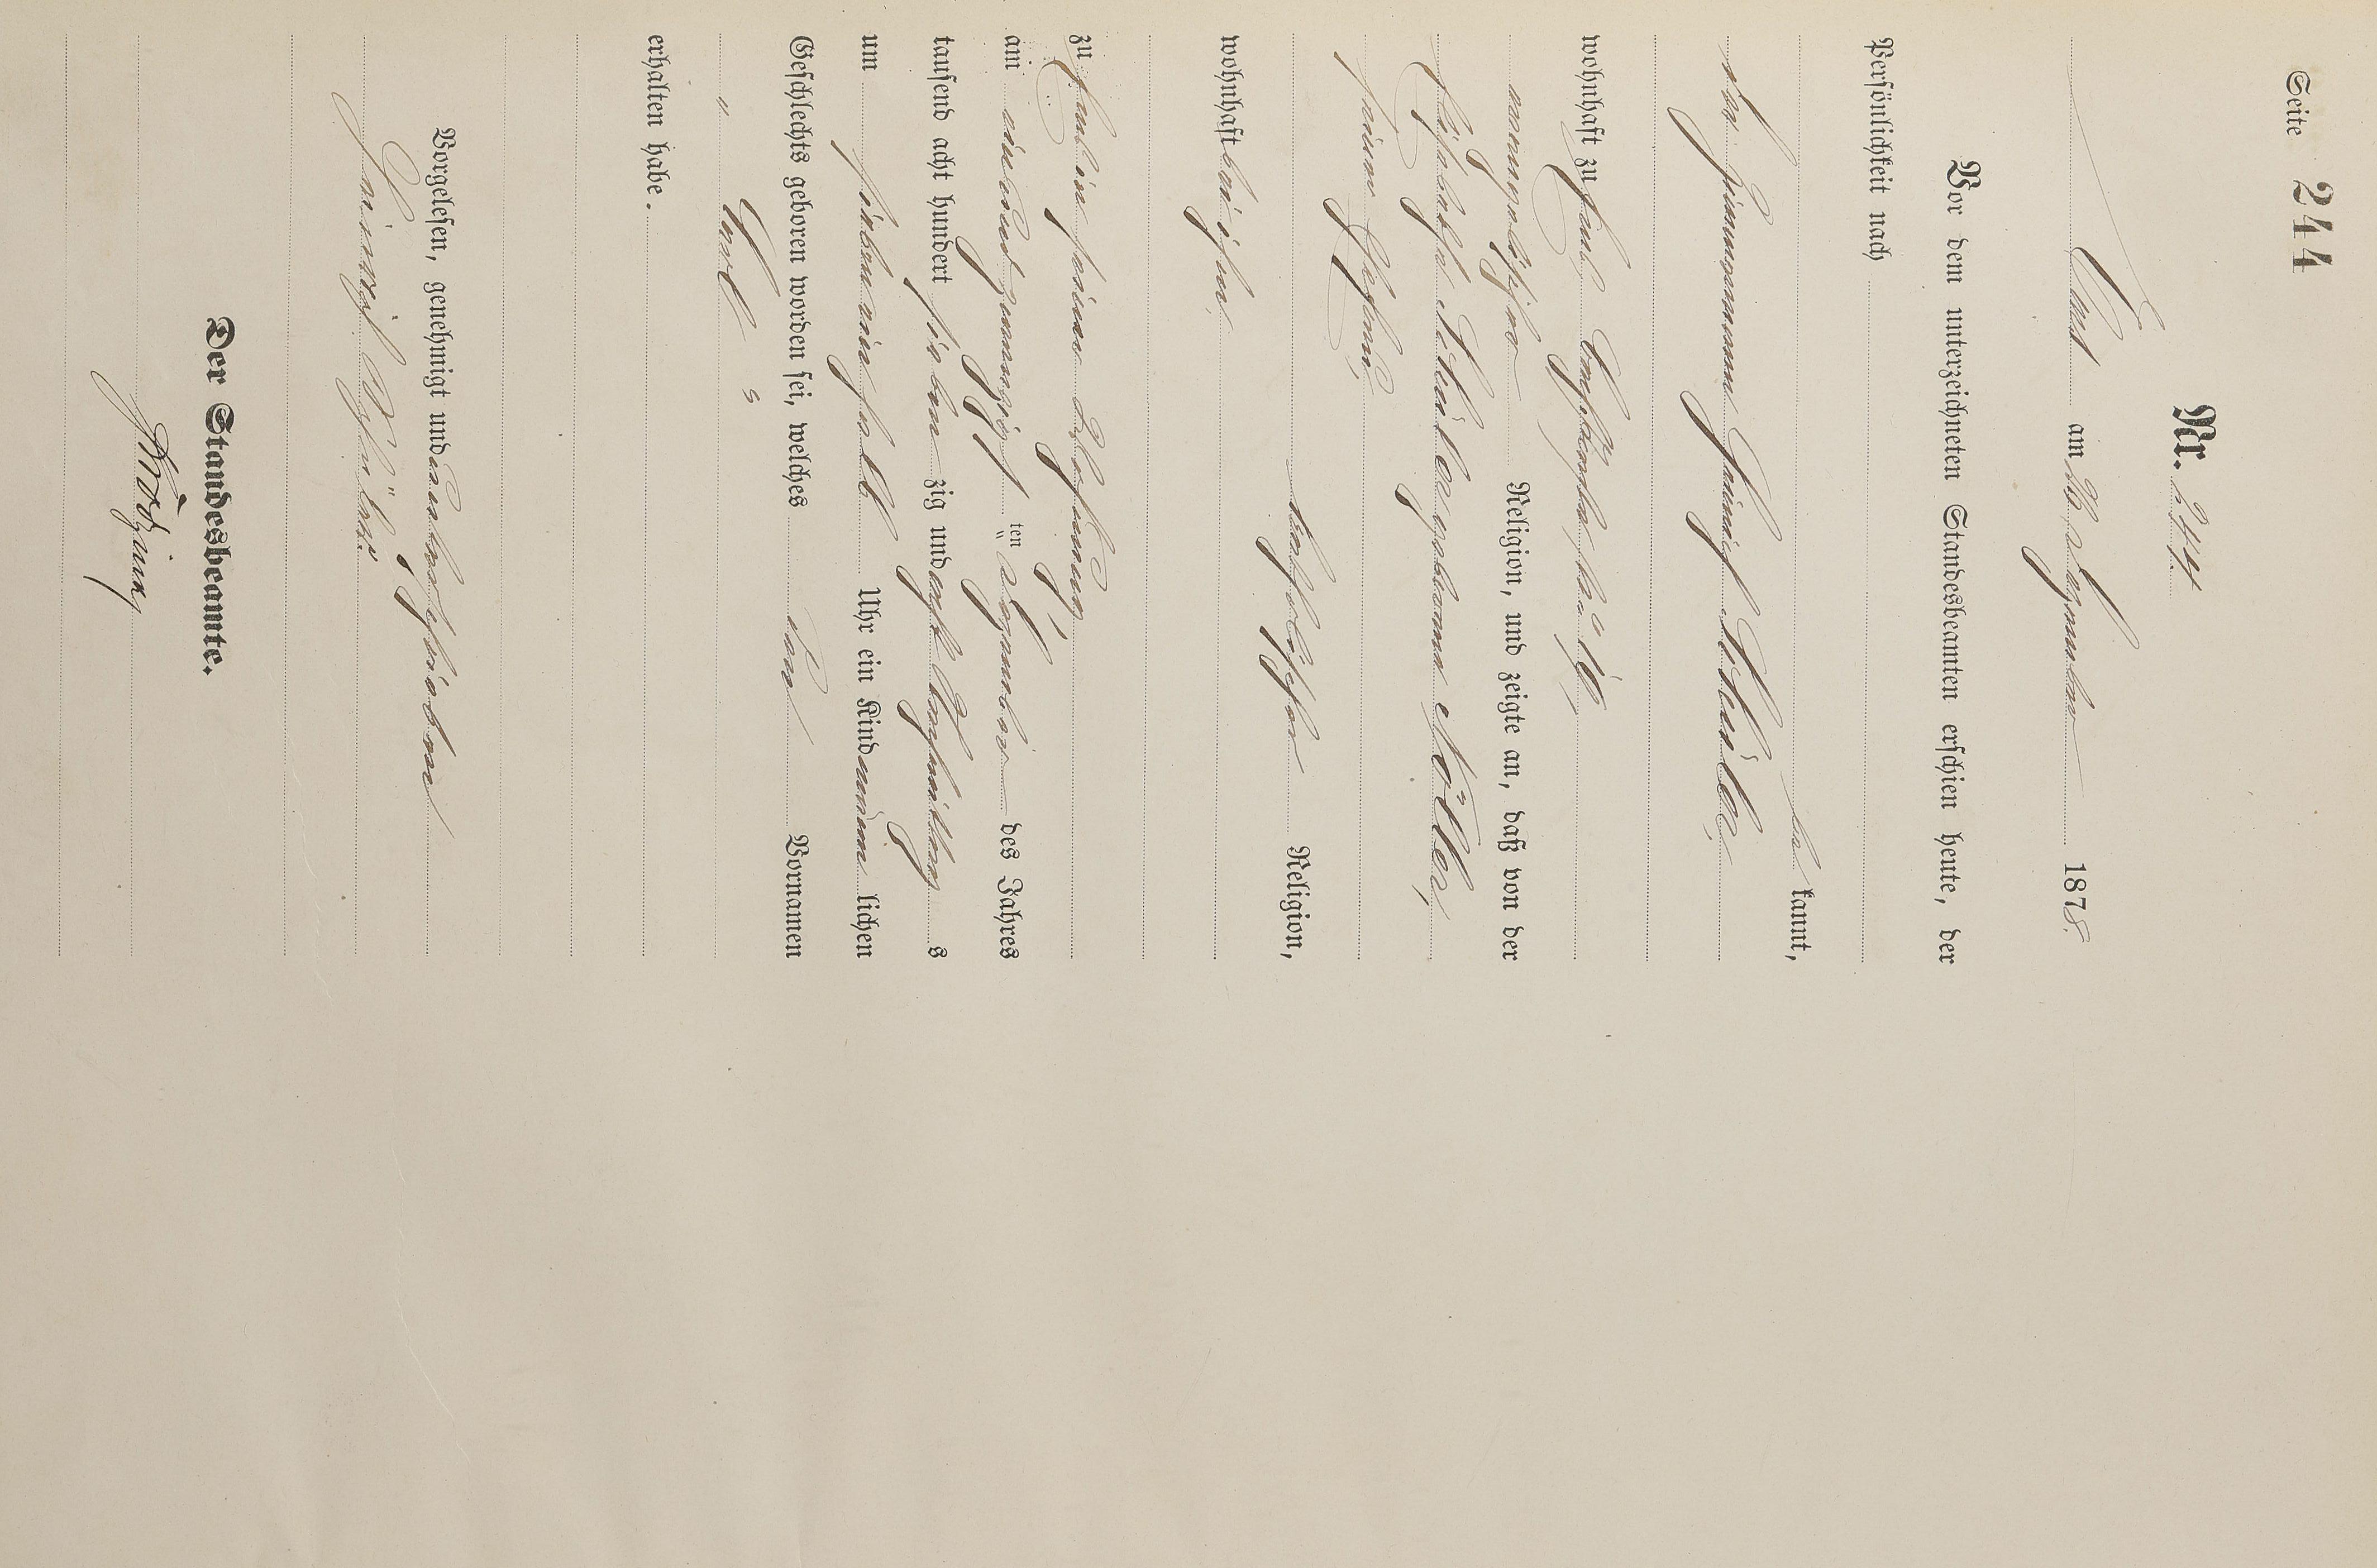 Seite 244
Nr. 244.
am 28. Dezember 1878.
Vor dem unterzeichneten Standesbeamten erschien heute, der
Persönlichkeit nach
be kannt,
der Zimmermann Heinrich
wohnhaft zu № 19,
evangelischer Religion, und zeigte an, daß von der
Elisabeth geborene Möller,
seiner Ehefrau,
katholischer Religion,
wohnhaft bei ihm,
zu in seiner Wohnung
am einundzwanzigsten ten Dezember des Jahres
tausend acht hundert sieben zig und acht Vormittags
um sieben ein halb Uhr ein Kind männ lichen
Geschlechts geboren worden sei, welches den Vornamen
"Carl"
erhalten habe.
Vorgelesen, genehmigt und unterschrieben
Heinrich
Der Standesbeamte.